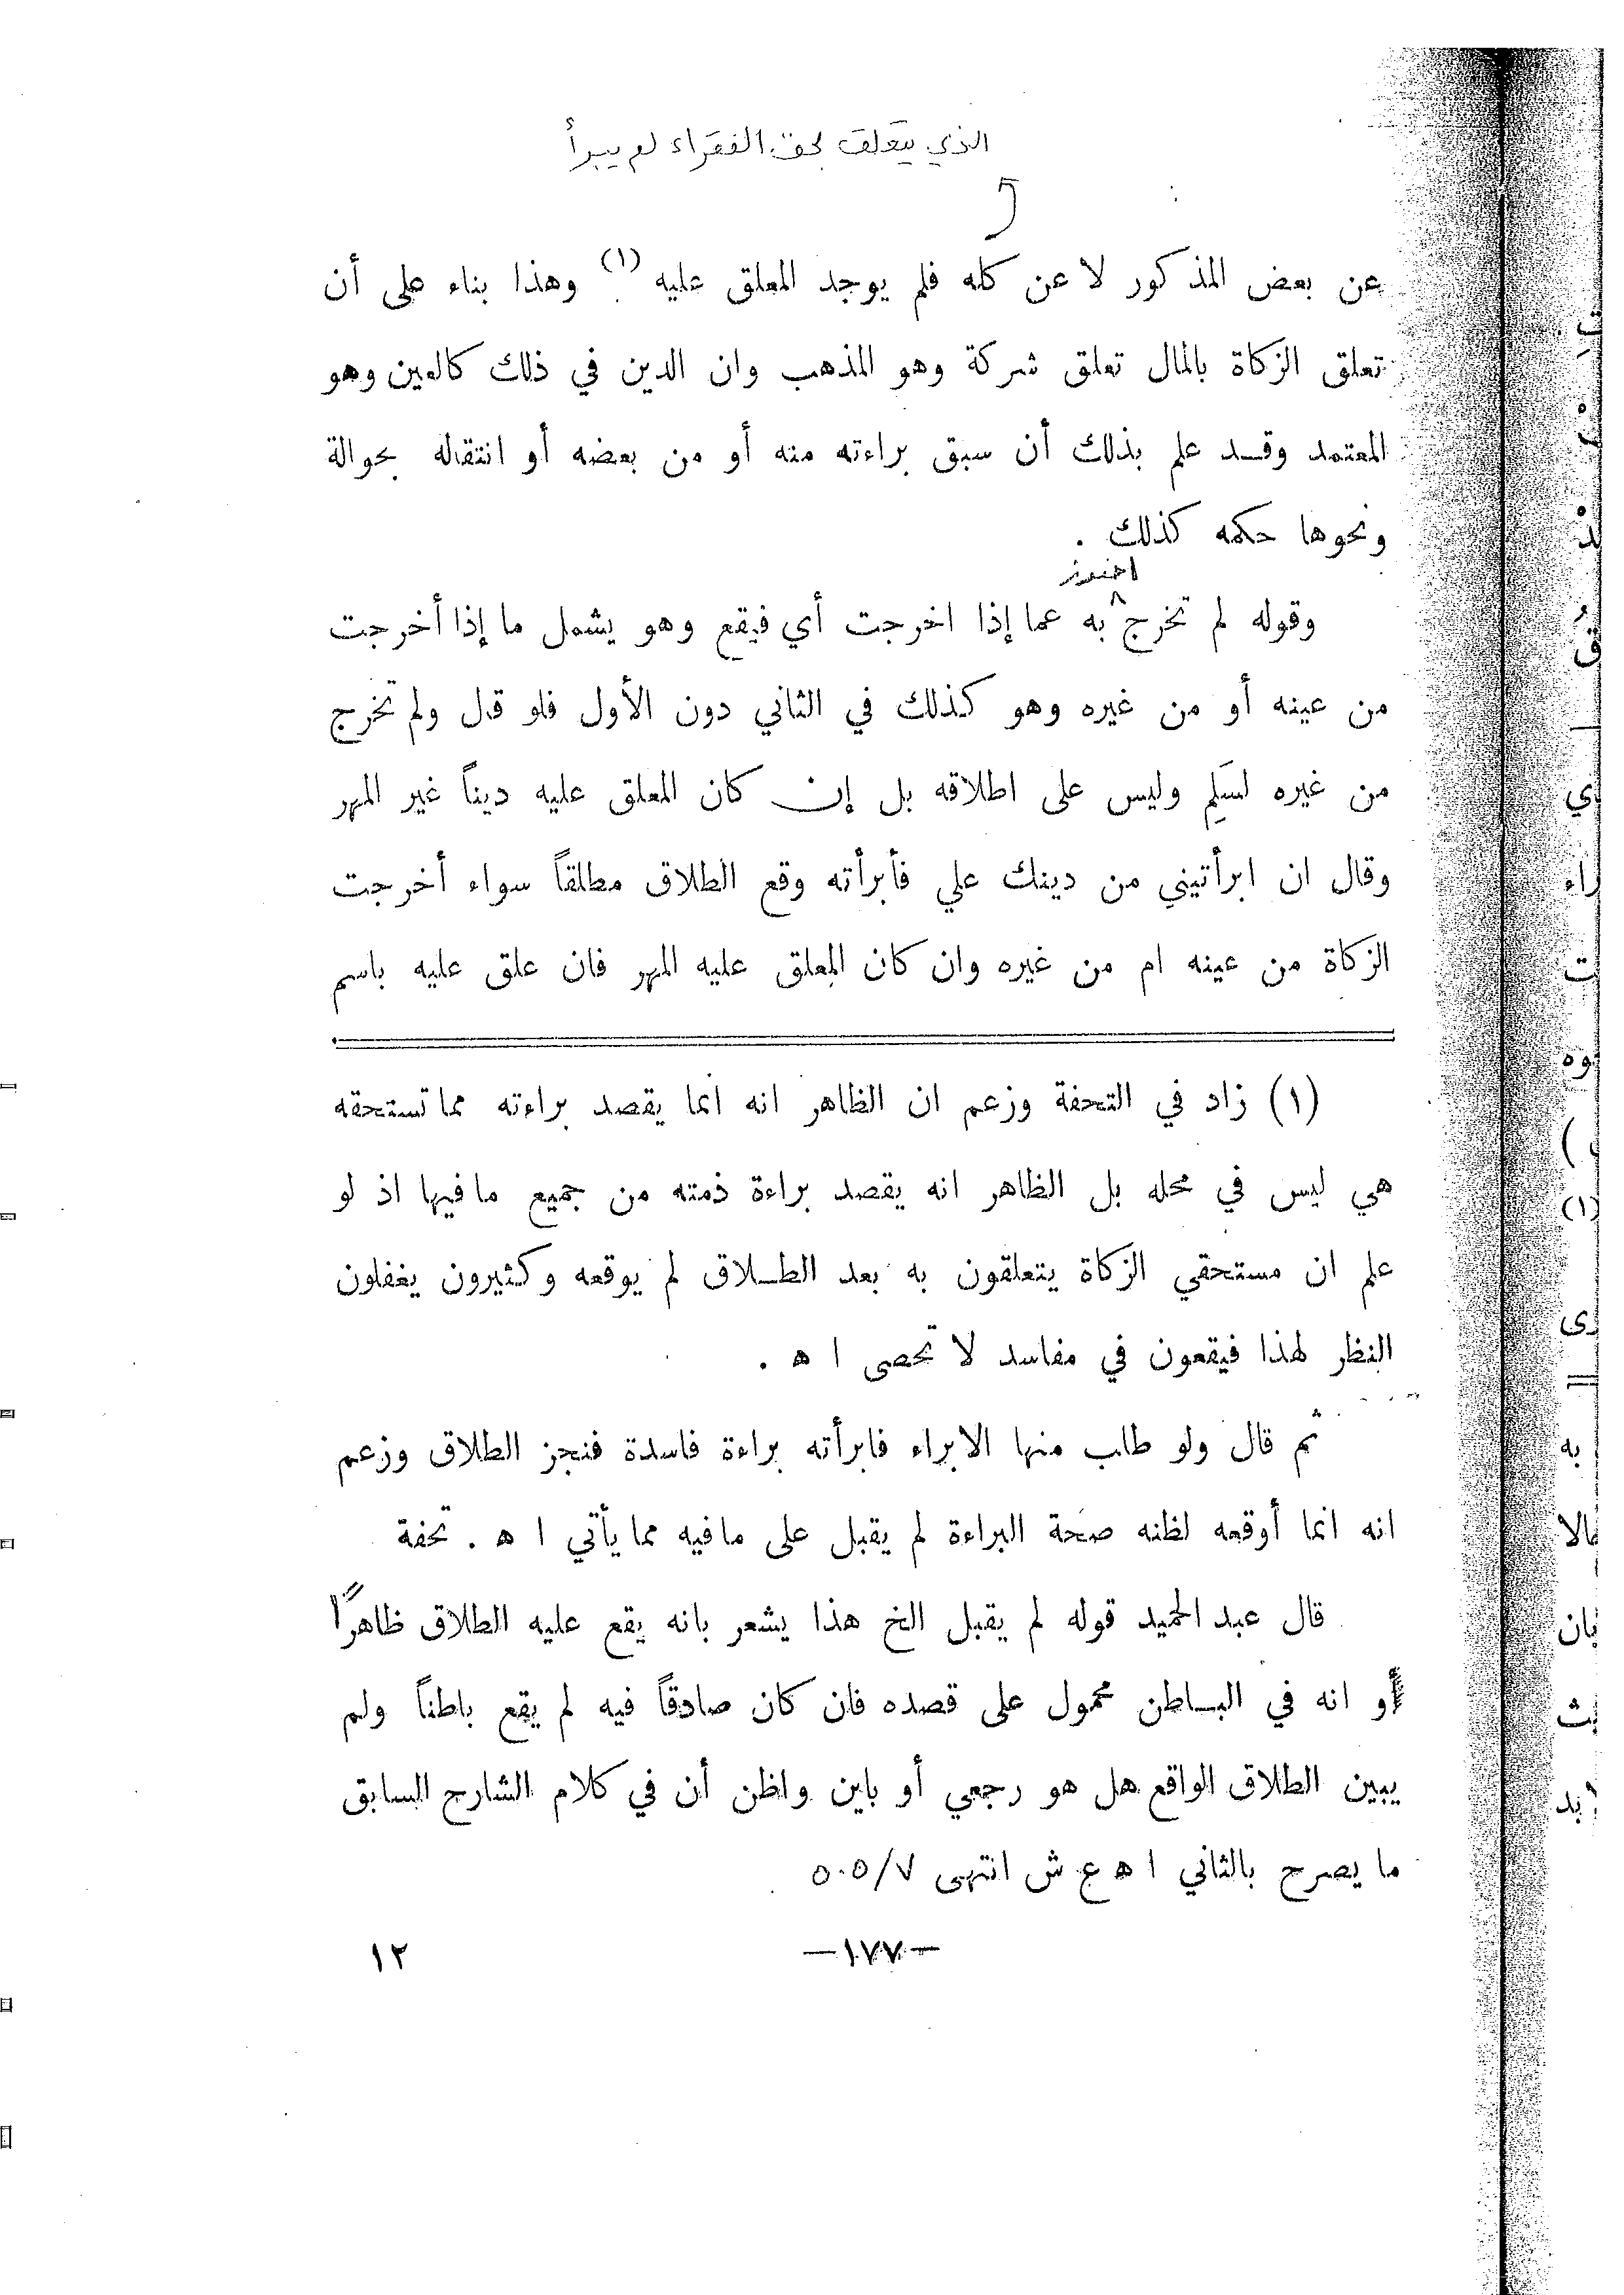 الذي يتعلق بحق الفقراء لم يبرأ
عن بعض المذكور لا عن كله فلم يوجد المعلق عليه (١) وهذا بناء على أن
تعلق الزكاة بالمال تعلق شركة وهو المذهب وان الدين في ذلك كالعين وهو
المعتمد وقد علم بذلك أن سبق براءته منه أو من بعضه أو انتقاله بحوالة
ونحوها حكمه كذلك .
احترز
وقوله لم تخرج به عما إذا اخرجت أي فيقع وهو يشمل ما إذا أخرجت
من عينه أو من غيره وهو كذلك في الثاني دون الأول فلو قال ولم تخرج
من غيره لسَلِم وليس على اطلاقه بل إن كان المعلق عليه ديناً غير المهر
وقال ان ابرأتيني من دينك علي فأبرأته وقع الطلاق مطلقاً سواء أخرجت
الزكاة من عينه ام من غيره وان كان المعلق عليه المهر فان علق عليه باسم
(١) زاد في التحفة وزعم ان الظاهر انه انما يقصد براءته مما تستحقه
هي ليس في محله بل الظاهر انه يقصد براءة ذمته من جميع ما فيها اذ لو
علم ان مستحقي الزكاة يتعلقون به بعد الطلاق لم يوقعه وكثيرون يغفلون
النظر لهذا فيقعون في مفاسد لا تحصى ا ه .
ثم قال ولو طلب منها الابراء فابرأته براءة فاسدة فنجز الطلاق وزعم
انه انما أوقعه لظنه صحة البراءة لم يقبل على ما فيه مما يأتي ا ه . تحفة
قال عبد الحميد قوله لم يقبل الخ هذا يشعر بانه يقع عليه الطلاق ظاهراً
أو انه في الباطن محمول على قصده فان كان صادقاً فيه لم يقع باطناً ولم
يبين الطلاق الواقع هل هو رجعي أو باين واظن أن في كلام الشارح السابق
ما يصرح بالثاني ا ه ع ش انتهى ٥٠٥/٧
—١٧٧—
١٢